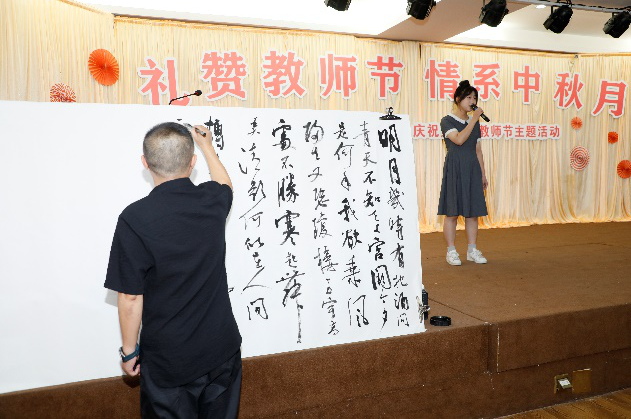 礼赞教师节 情系中秋月
庆祝
教师节主题活动
明月幾時有把酒问
青天不知天宫阙今夕
是何年我欲乘风
归去又恐瓊楼玉宇高
處不勝寒起舞
弄清影何似在人间
轉